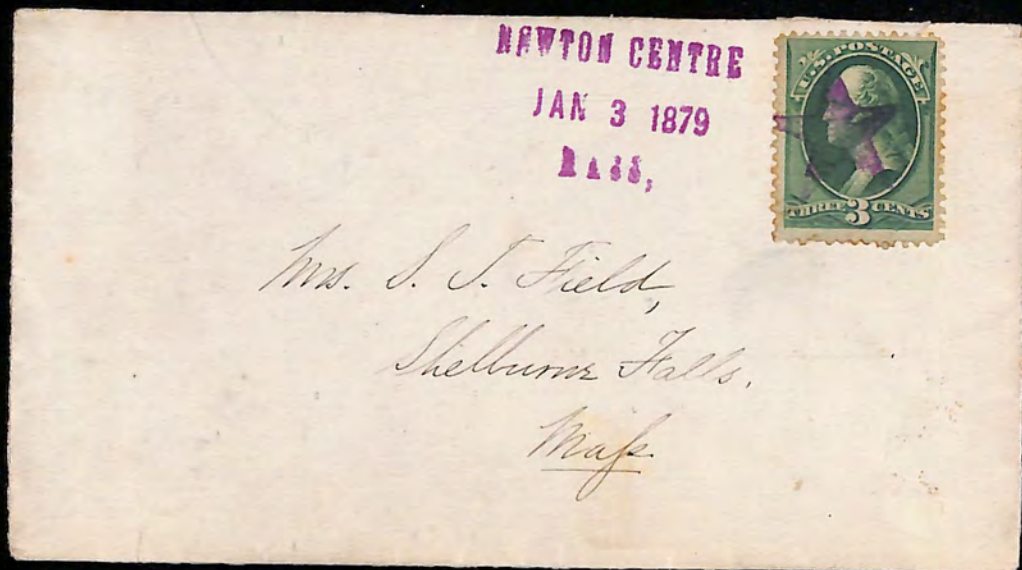 NEWTON CENTRE
JAN 3 1879
MASS,
U.S. POSTAGE
THREE 3 CENTS
Mrs. S. T. Field,
Shelburne Falls,
Maſs.